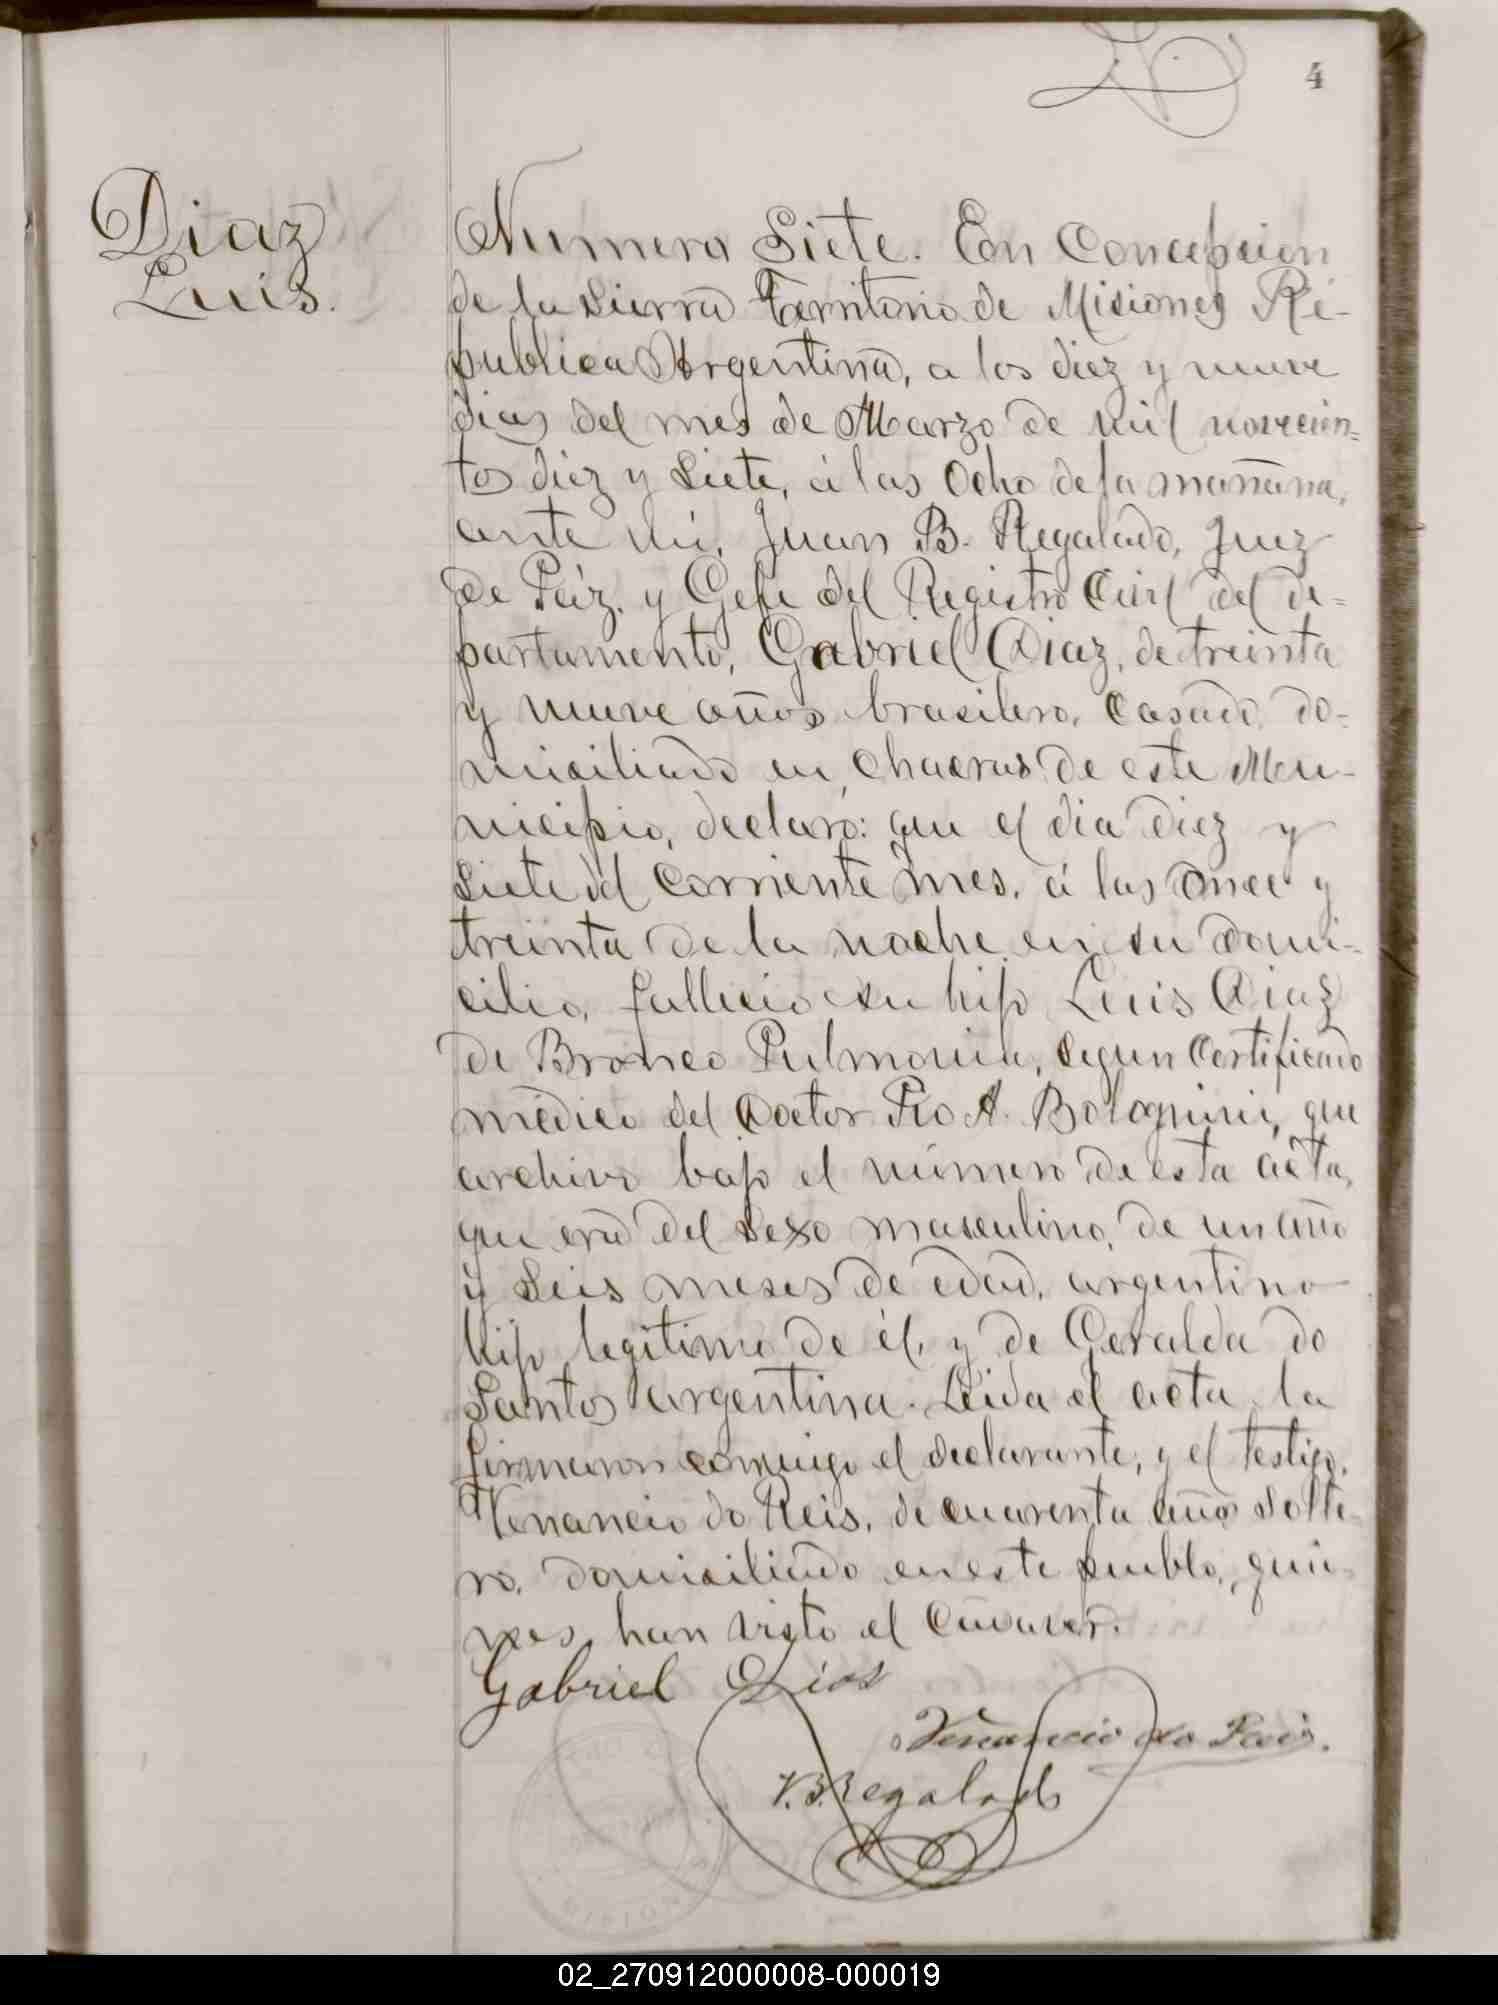 4
Diaz
Luis.
Numero Siete. En Concepcion
de la Sierra Territorio de Misiones Re-
publica Argentina, a los diez y nueve
dias del mes de Marzo de mil novecien=
tos diez y siete, á las ocho de la mañana,
ante mi, Juan B. Regalado, Juez
de Páz. y Gefe del Registro Civil del de=
partamento, Gabriel Diaz, de treinta
y nueve años brasilero, casado, do-
miciliado en, chacras de este Mu-
nicipio, declaró: que el dia diez y
siete del corriente mes, á las once y
treinta de la noche en su domi-
cilio, fallecio su hijo Luis Diaz
de Bronco Pulmonia, segun certificado
médico del Doctor Pio A. Bolognini, que
archivo bajo el número de esta acta,
que era del sexo masculino, de un año
y seis meses de edad, argentino
hijo legitimo de él, y de Geralda do
Santos argentina. Leida el acta, la
firmaron conmigo el declarante, y el testigo,
Venancio do Reis, de cuarenta años solte-
ro, domiciliado en este pueblo, quie-
nes, han visto el cadaver.
Gabriel Dias
Venancio do Reis.
J.B.Regalado
02_270912000008-000019